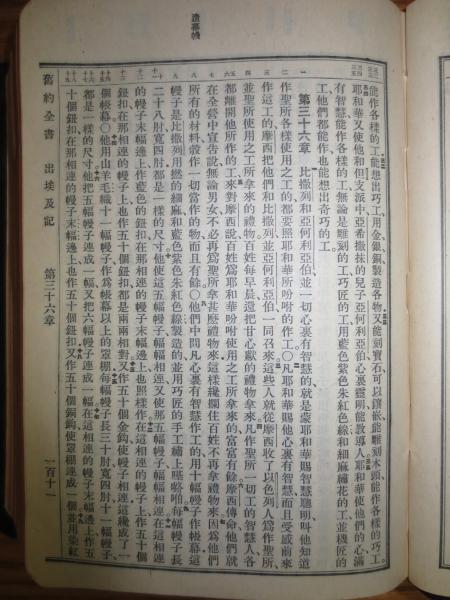 能作各樣的工能想出巧工用金銀銅製造各物又能刻寶石可以鑲嵌能雕刻木頭能作各樣的巧工
耶和華又使他和但支派中亞希撒抹的兒子亞何利亞伯心裏靈明能教導人耶和華使他們的心滿
有智慧能作各樣的工無論是雕刻的工巧匠的工用藍色紫色朱紅色線和細麻繡花的工並機匠的
工他們都能作也能想出奇巧的工
第三十六章 比撒列和亞何利亞伯並一切心裏有智慧的就是蒙耶和華賜智慧聰明叫他知道
作聖所各樣使用之工的都要照耶和華所吩咐的作工○凡耶和華賜他心裏有智慧而且受感前來
作這工的摩西把他們和比撒列並亞何利亞伯一同召來這些人就從摩西收了以色列人爲作聖所
並聖所使用之工所拿來的禮物百姓每早晨還把甘心獻的禮物拿來凡作聖所一切工的智慧人各
都離開他所作的工來對摩西說百姓爲耶和華吩咐使用之工所拿來的富富有餘摩西傳命他們就
在全營中宣告說無論男女不必再爲聖所拿甚麽禮物來這樣纔攔住百姓不再拿禮物來因爲他們
所有的材料彀作一切當作的物而且有餘○他們中間凡心裏有智慧作工的用十幅幔子作帳幕這
幔子是比撒列用撚的細麻和藍色紫色朱紅色線製造的並用巧匠的手工繡上每幅幔子長
二十八肘寬四肘都是一樣的尺寸他使這五幅幔子幅幅相連又使那五幅幔子幅幅相連在這相連
的幔子末幅邊上作藍色的鈕扣在那相連的幔子末幅邊上也照樣作在這相連的幔子上作五十個
鈕扣在那相連的幔子上也作五十個鈕扣都是兩兩相對又作五十個金鈎使幔子相連這纔成了一
個帳幕○他用山羊毛織十一幅幔子作爲帳幕以上的罩棚每幅幔子長三十肘寬四肘十一幅幔子
都是一樣的尺寸他把五幅幔子連成一幅又把六幅幔子連成一幅在這相連的幔子末幅邊上作五
十個鈕扣在那相連的幔子末幅邊上也作五十個鈕扣又作五十個銅鈎使罩棚連成一個並用染紅
舊約全書 出埃及記 第三十六章 一百十一
造幕幔